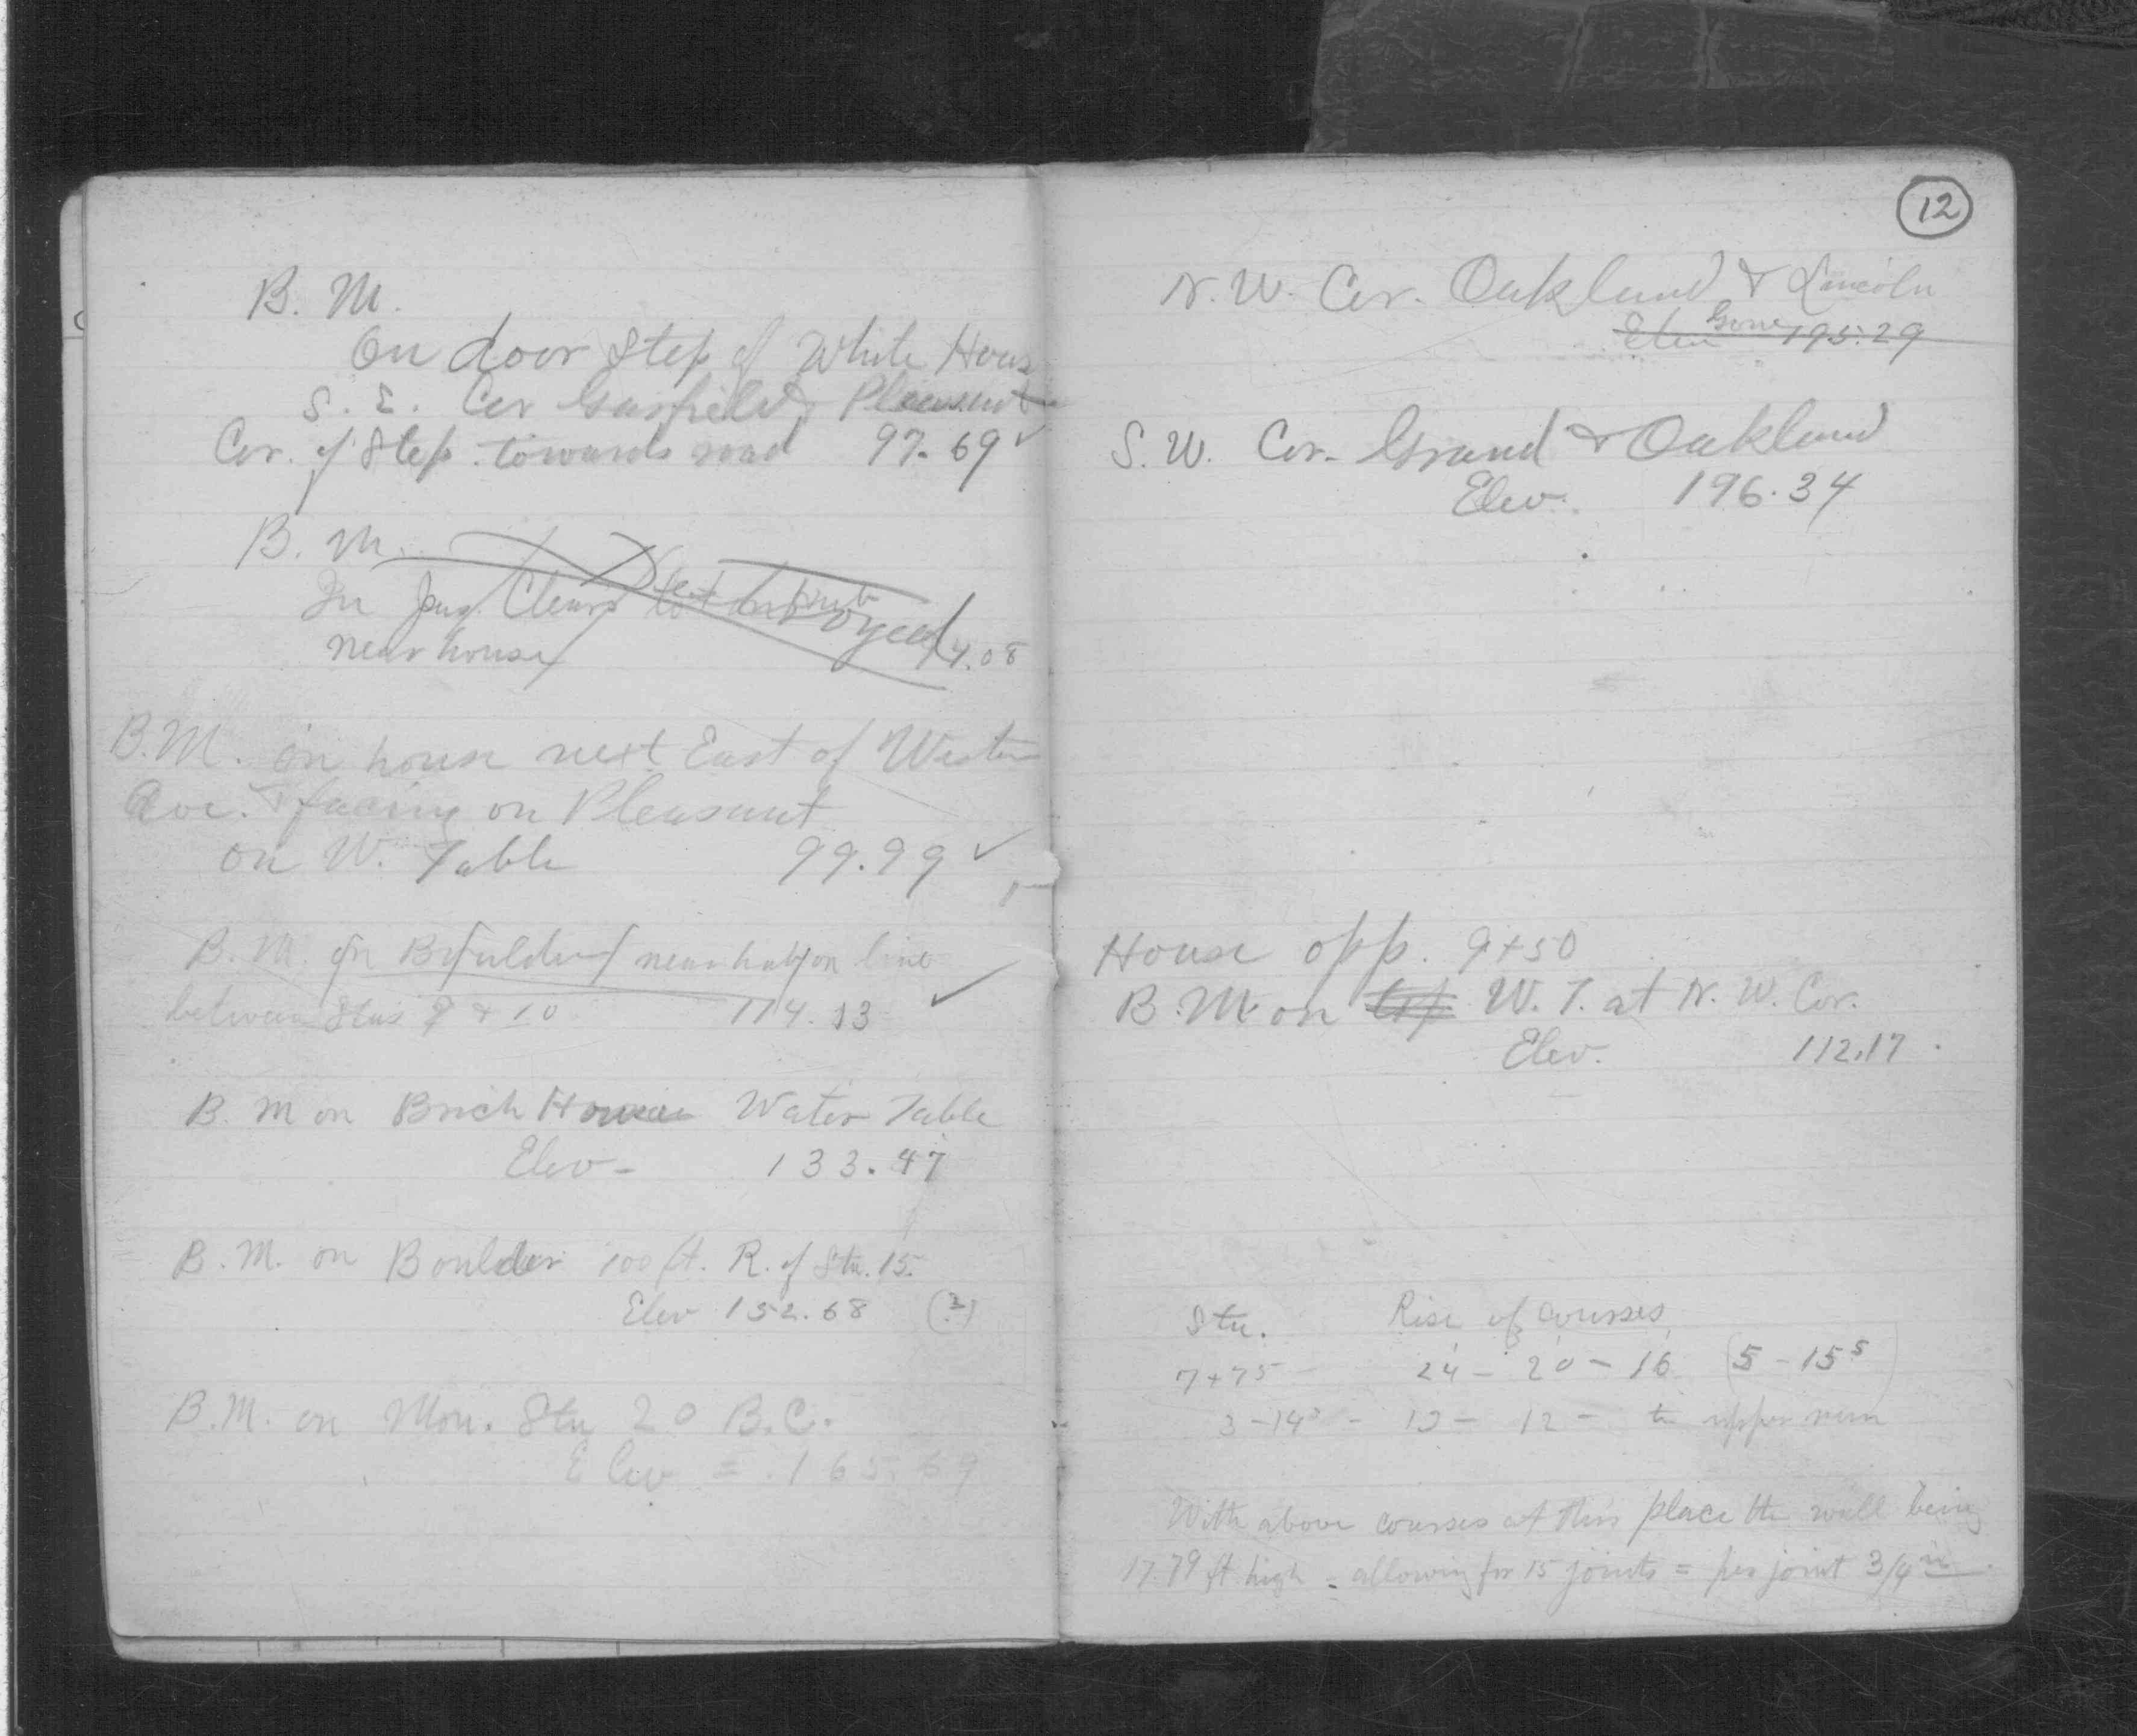 B. M.
On door step of White House
S. E. Cor Garfield & Pleasant
Cor. of Step towards road 97.69 ✓
B. M.
In Jas. Cleary lot
Destroyed
near house 4.08
B.M. on house next East of Western
Ave. & facing on Pleasant
on W. Table 99.99 ✓
B. M. on Boulder near hub on line
between Stas 9 & 10 114.13 ✓
B. M on Brick House Water Table
Elev - 133.47
B. M. on Boulder 100 ft. R. of Sta. 15.
Elev 152.68 (?)
B.M. on Mon. Sta 20 B.C.
Elev = 165.69
12
N. W. Cor. Oakland & Lincoln
Gone
Elev 195.29
S. W. Cor. Grand & Oakland
Elev. 196.34
House opp. 9+50
B.M. on W. T. at N. W. Cor.
Elev. 112.17
Sta. Rise of courses
7+75 24 - 20 - 16 (5 - 15⁵)
3 - 14 - 13 - 12 - to upper
With above courses at this place the wall being
17.79 ft high - allowing for 15 joints = per joint 3/4 in